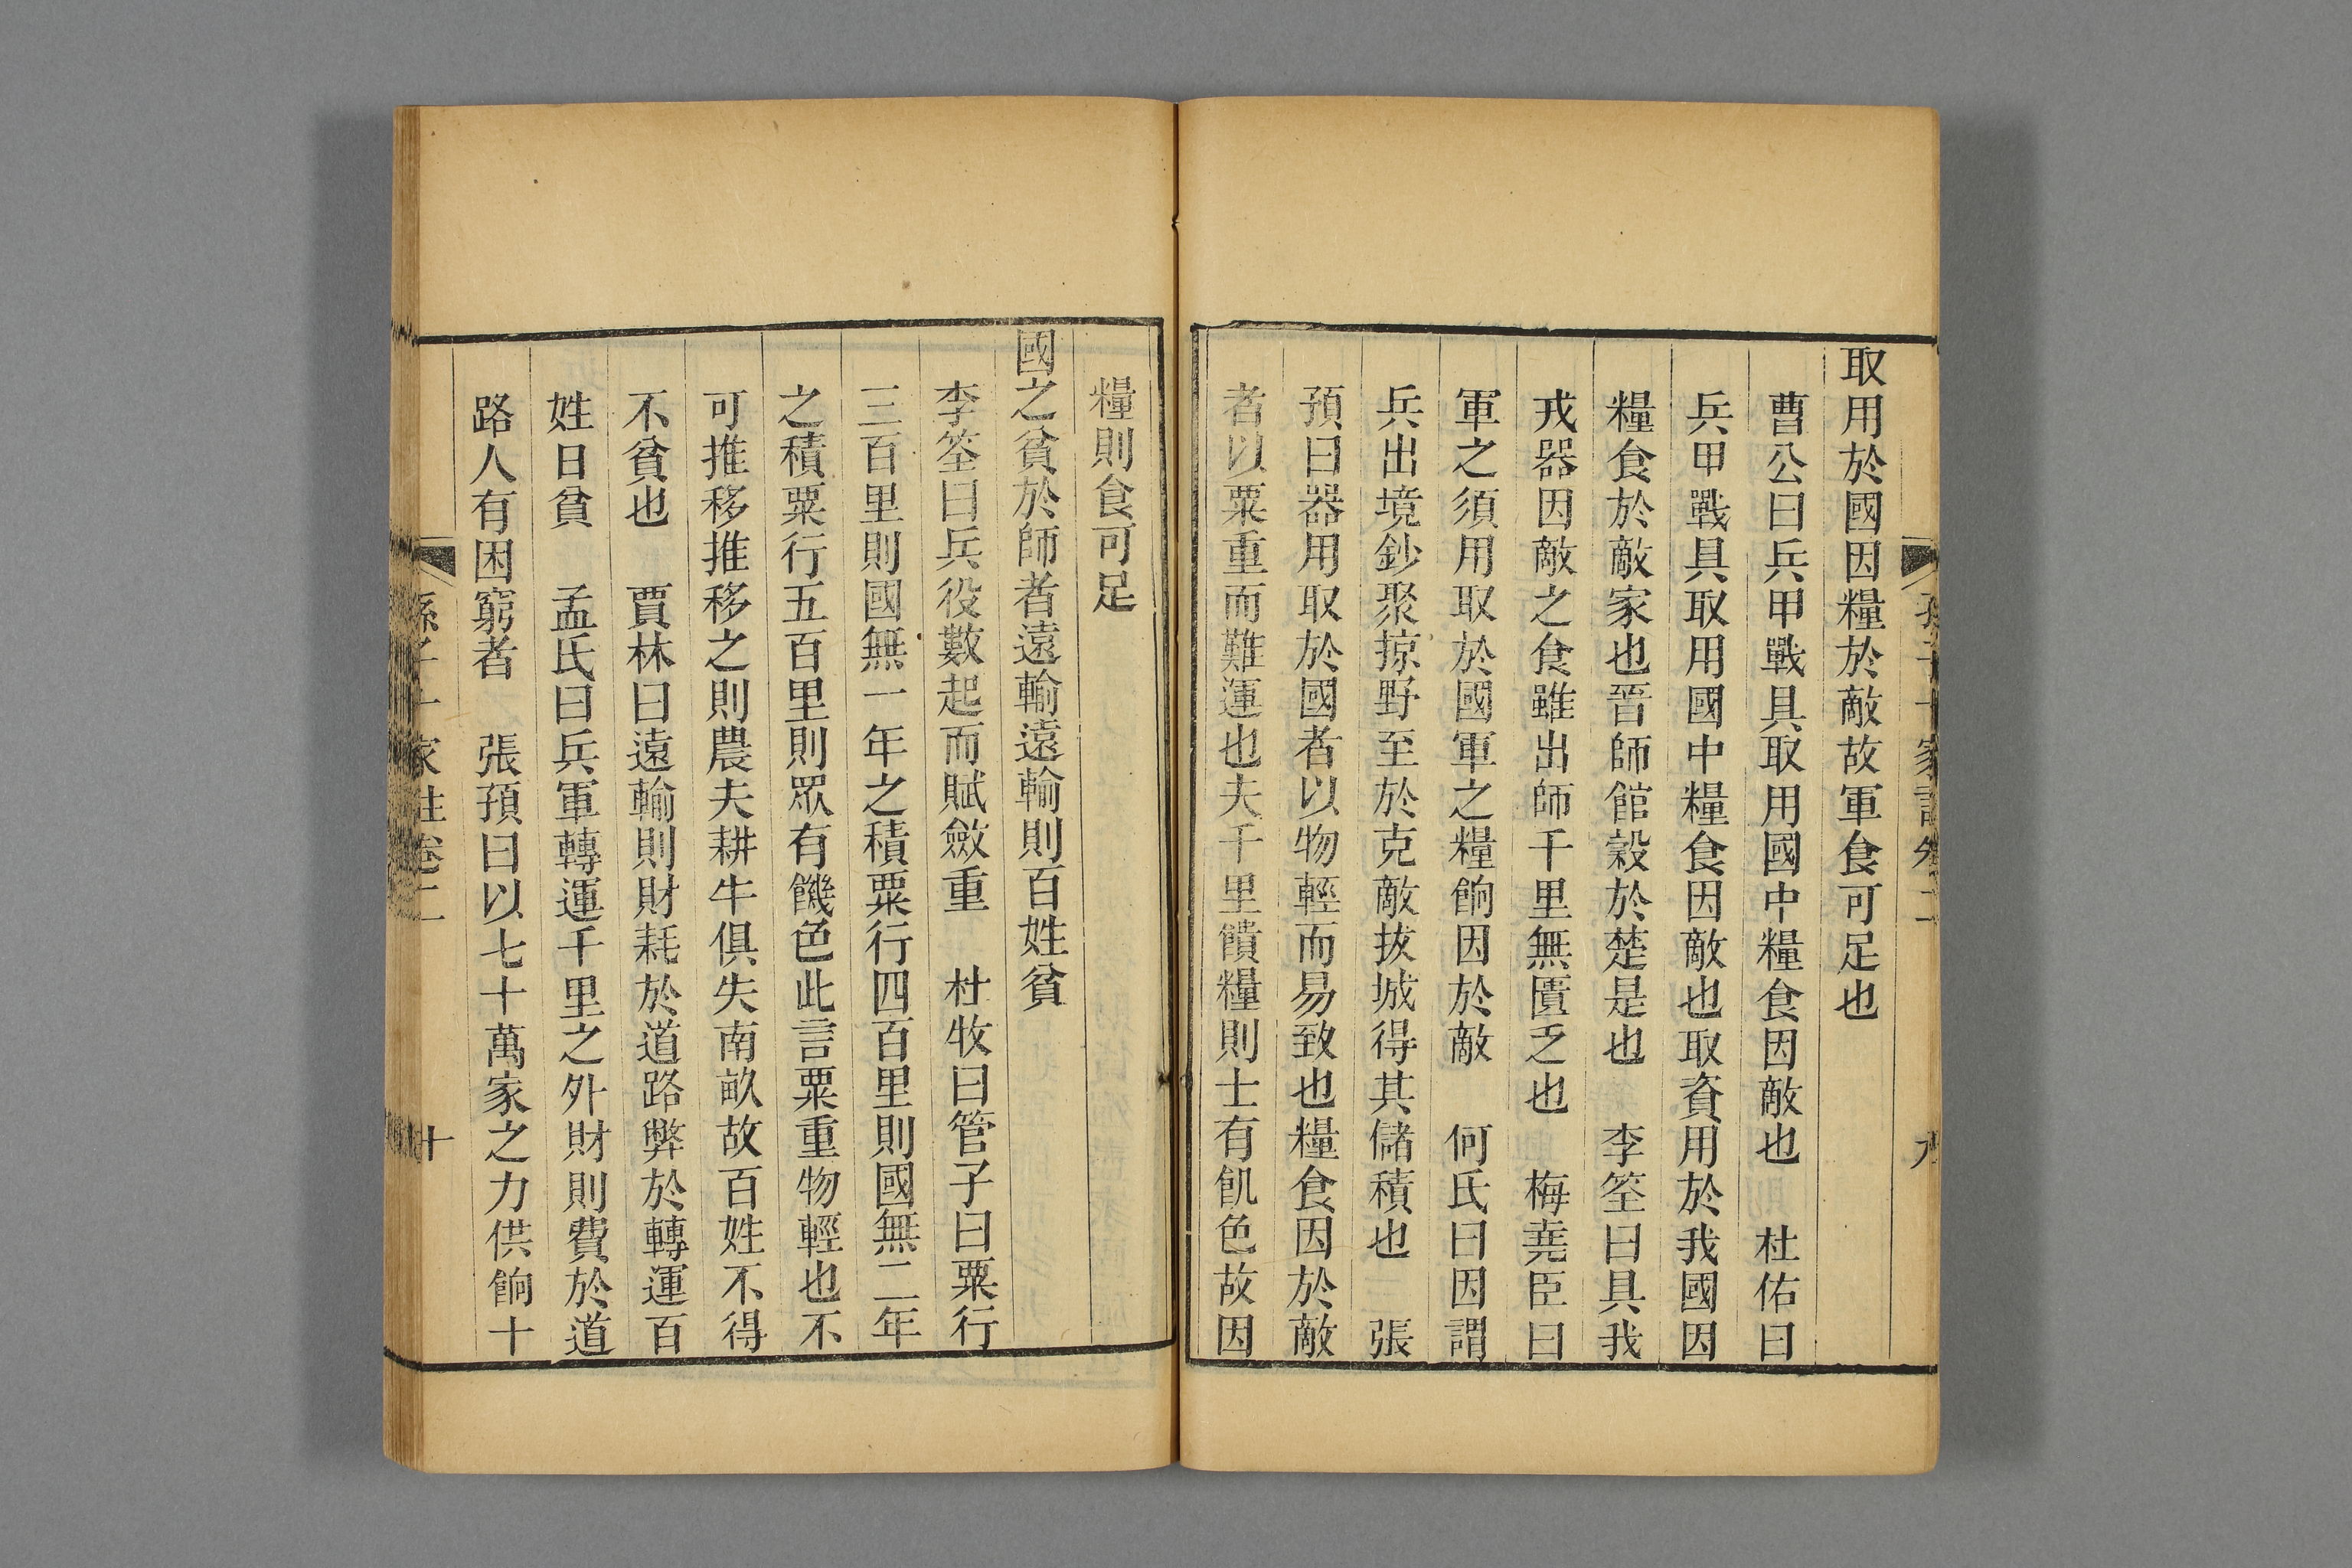 取用於國因糧於敵故軍食可足也
曹公曰兵甲戰具取用國中糧食因敵也　杜佑曰
兵甲戰具取用國中糧食因敵也取資用於我國因
糧食於敵家也晉師館穀於楚是也　李筌曰具我
戎器因敵之食雖出師千里無匱乏也　梅堯臣曰
軍之須用取於國軍之糧餉因於敵　何氏曰因謂
兵出境鈔聚掠野至於克敵拔城得其儲積也　張
預曰器用取於國者以物輕而易致也糧食因於敵
者以粟重而難運也夫千里饋糧則士有飢色故因
糧則食可足
國之貧於師者遠輸遠輸則百姓貧
李筌曰兵役數起而賦斂重　杜牧曰管子曰粟行
三百里則國無一年之積粟行四百里則國無二年
之積粟行五百里則眾有饑色此言粟重物輕也不
可推移推移之則農夫耕牛俱失南畝故百姓不得
不貧也　賈林曰遠輸則財耗於道路弊於轉運百
姓日貧　孟氏曰兵軍轉運千里之外財則費於道
路人有困窮者　張預曰以七十萬家之力供餉十
孫子十家注卷二　十